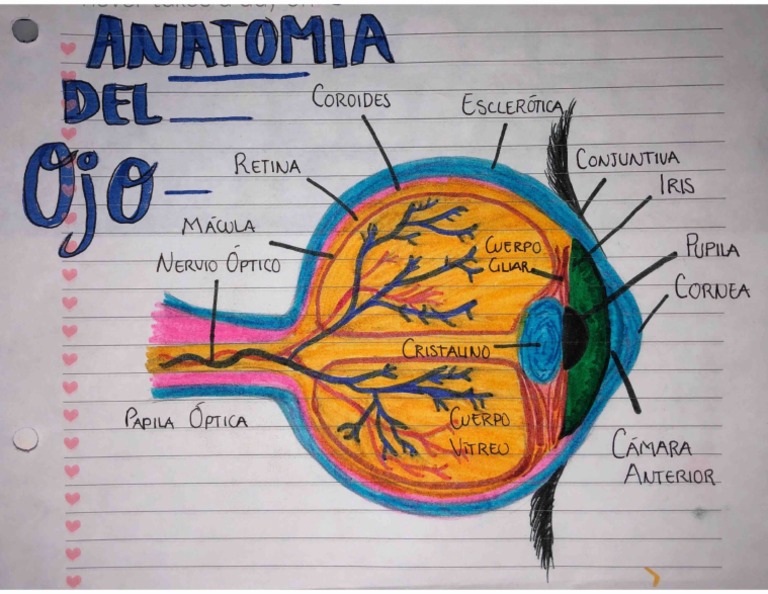 ANATOMIA
DEL
Ojo
COROIDES
ESCLERÓTICA
RETINA
CONJUNTIVA
IRIS
MÁCULA
NERVIO ÓPTICO
CUERPO
CILIAR
PUPILA
CORNEA
CRISTALINO
PAPILA ÓPTICA
CUERPO
VÍTREO
CÁMARA
ANTERIOR